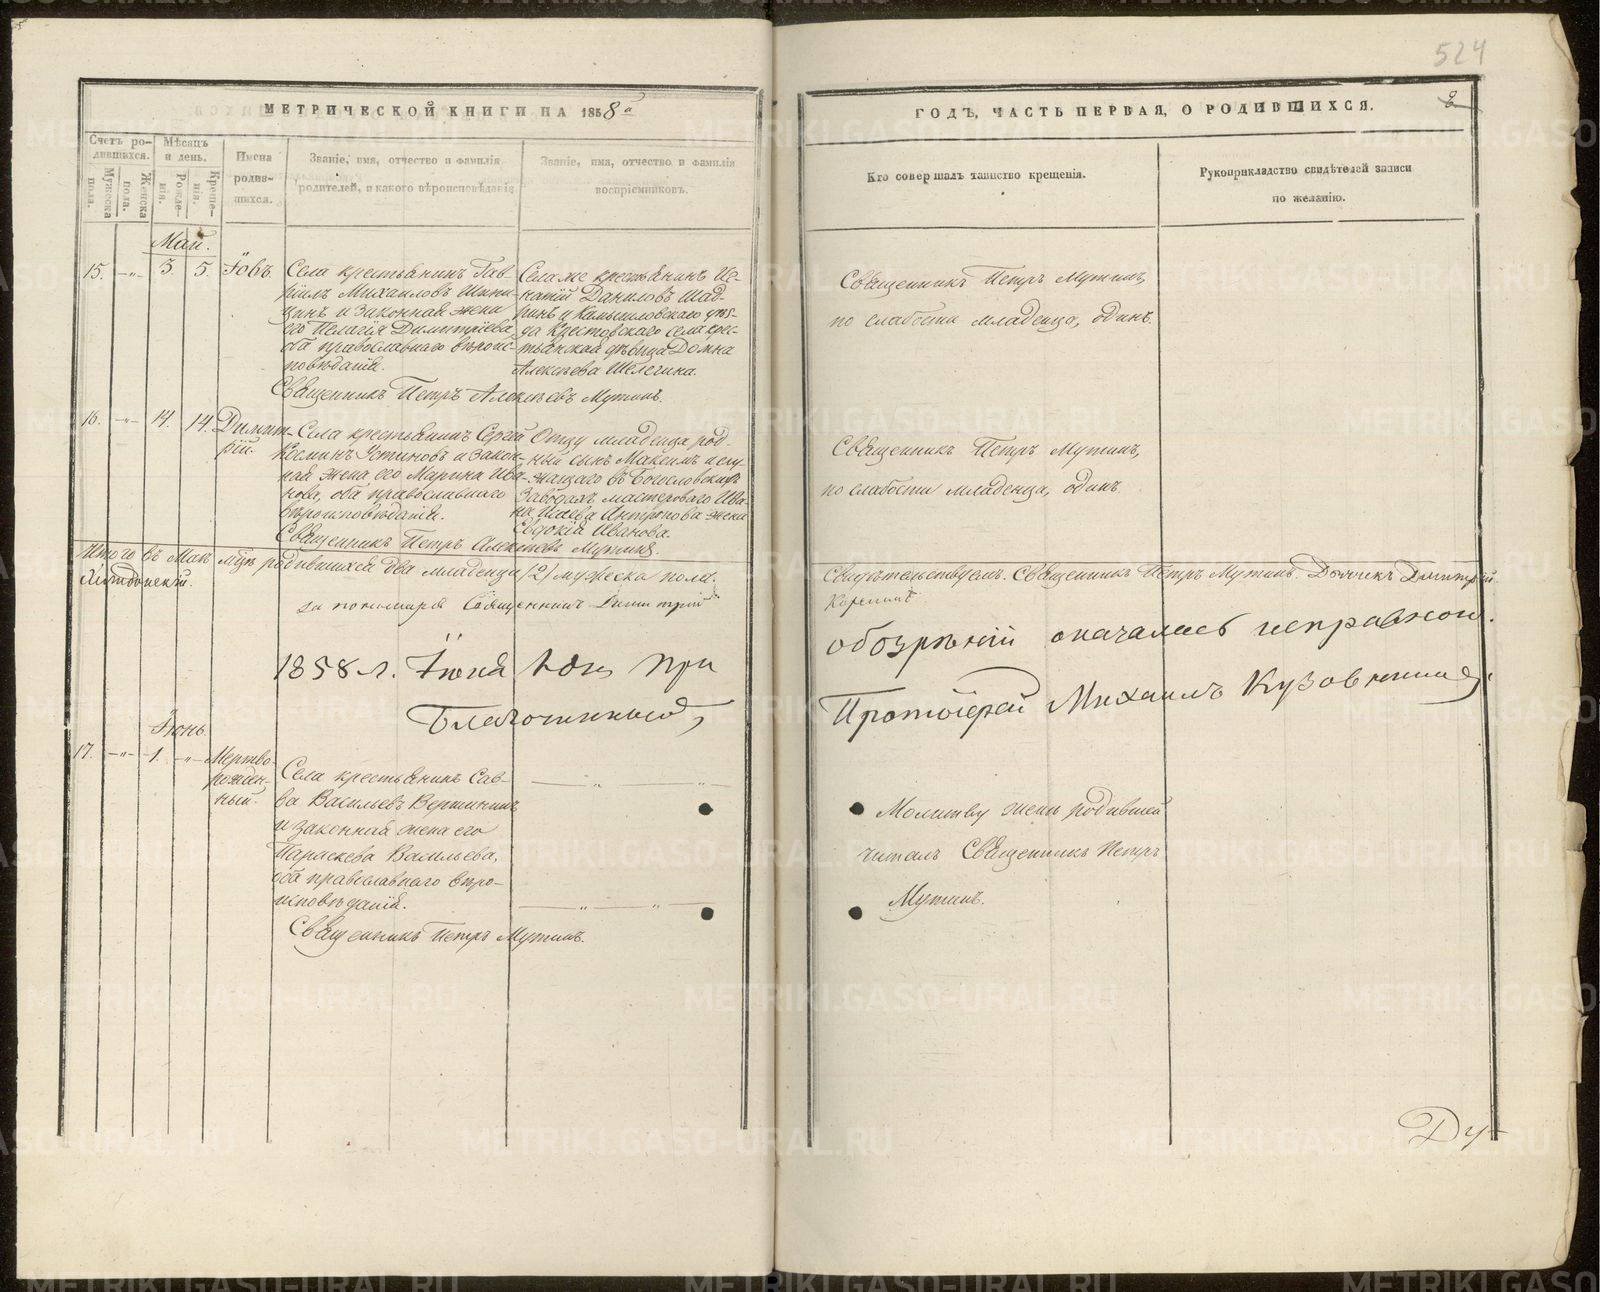 524
МЕТРИЧЕСКОЙ КНИГИ НА 1858 а
ГОДЪ, ЧАСТЬ ПЕРВАЯ, О РОДИВШИХСЯ.
2
Счетъ ро-
дившихся.
Мужеска
пола.
Женска
пола.
Мѣсяцъ
и день.
Рожде-
нія.
Креще-
нія.
Имена
родив-
шихся.
Званіе, имя, отчество и фамилія
родителей, и какого вѣроисповѣданія.
Званіе, имя, отчество и фамилія
воспріемниковъ.
Кто совершалъ таинство крещенія.
Рукоприкладство свидѣтелей записи
по желанію.
Май.
15. —„— 3. 5. Іовъ
Села крестьянинъ Гав-
ріилъ Михаиловъ
и законная жена
его Пелагія Димитріева,
оба православнаго вѣроис-
повѣданія.
Села же крестьянинъ Иг-
натій Даниловъ Шад-
ринъ и Камышловскаго уѣз-
да Крестовскаго села крес-
тьянская дѣвица Домна
Алексѣева Шелегина.
Священникъ Петръ Алексѣевъ Мутинъ.
Священникъ Петръ Мутинъ,
по слабости младенца, одинъ.
16. —„— 14. 14. Димит-
рій.
Села крестьянинъ Сергій
Косминъ Устиновъ и закон-
ная жена его Марина Ива-
нова, оба православнаго
вѣроисповѣданія.
Отцу младенца род-
ный сынъ Максимъ и слу-
жащаго въ Богословскихъ
Заводахъ мастероваго Ива-
на Исаева Антропова жена
Евдокія Иванова.
Священникъ Петръ Алексѣевъ Мутинъ.
Священникъ Петръ Мутинъ,
по слабости младенца, одинъ.
Итого въ Маѣ мцѣ родившихся два младенца /2/ мужеска пола.
Свидѣтельствуемъ. Священникъ Петръ Мутинъ. Дьячекъ Димитрій
за пономаря Священникъ Димитрій
1858 г. Іюня дня при
обозрѣніи оказалась исправною.
Благочинный,
Протоіерей Михаилъ Кузовниковъ.
Іюнь.
17. —„— 1. —„— Мертво-
рожден-
ный.
Села крестьянинъ Сав-
ва Васильевъ Вершининъ
и законная жена его
Параскева Васильева,
оба православнаго вѣро-
исповѣданія.
Священникъ Петръ Мутинъ.
Молитву женѣ родившей
читалъ Священникъ Петръ
Мутинъ.
Ду-
METRIKI.GASO-URAL.RU